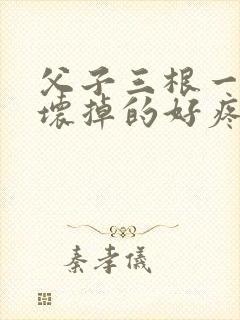 父子三根一
壞掉的好疼
秦孝儀